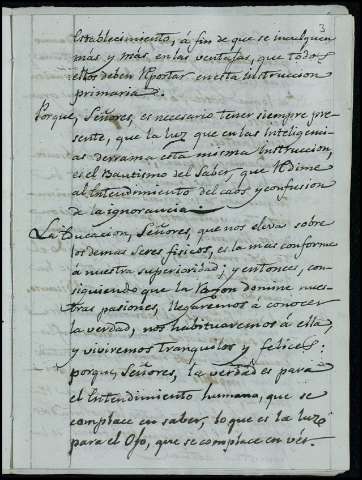 3
Establecimiento, á fin de que se inculquen
más y más en las ventajas, que todos
ellos deben Reportar en ésta Instruccion
primaria.
Porque, Señores, es necesario tener siempre pre-
sente, que la luz que en las Inteligen-
cias derrama ésta misma Instruccion,
es el Bautismo del Saber, que Redime
al Entendimiento del caos y confusion
de la ignorancia.
La Educacion, Señores, que nos eleva sobre
los demas Seres fisicos, es la mas conforme
á nuestra superioridad; y entonces, con-
siguiendo que la Razon domine nues-
tras pasiones, llegaremos á conocer
la verdad, nos habituaremos á ella,
y viviremos tranquilos y felices:
porque, Señores, la verdad es para
el Entendimiento humano, que se
complace en saber, lo que es la luz
para el Ojo, que se complace en vér.